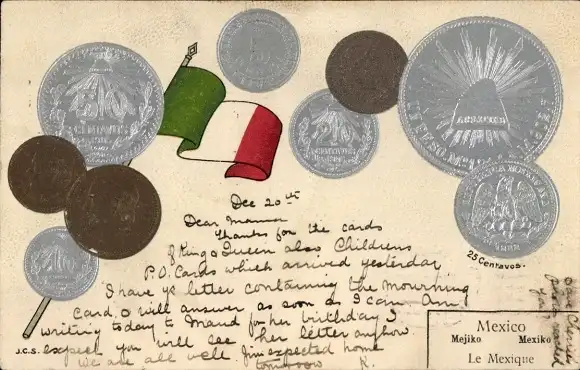 Dec 20th
Dear Mamma
Thanks for the cards
of King & Queen also Childrens
P.O. Cards which arrived yesterday
I have yr letter containing the Mourning
Card, & will answer as soon as I can. Am
writing today to Maud for her birthday I
expect you will see her letter anyhow
We are all well. Jim expected home
tomorrow R.
50
CENTAVOS
20
25 Centavos.
Mexico
Mejiko Mexiko
Le Mexique
J.C.S.